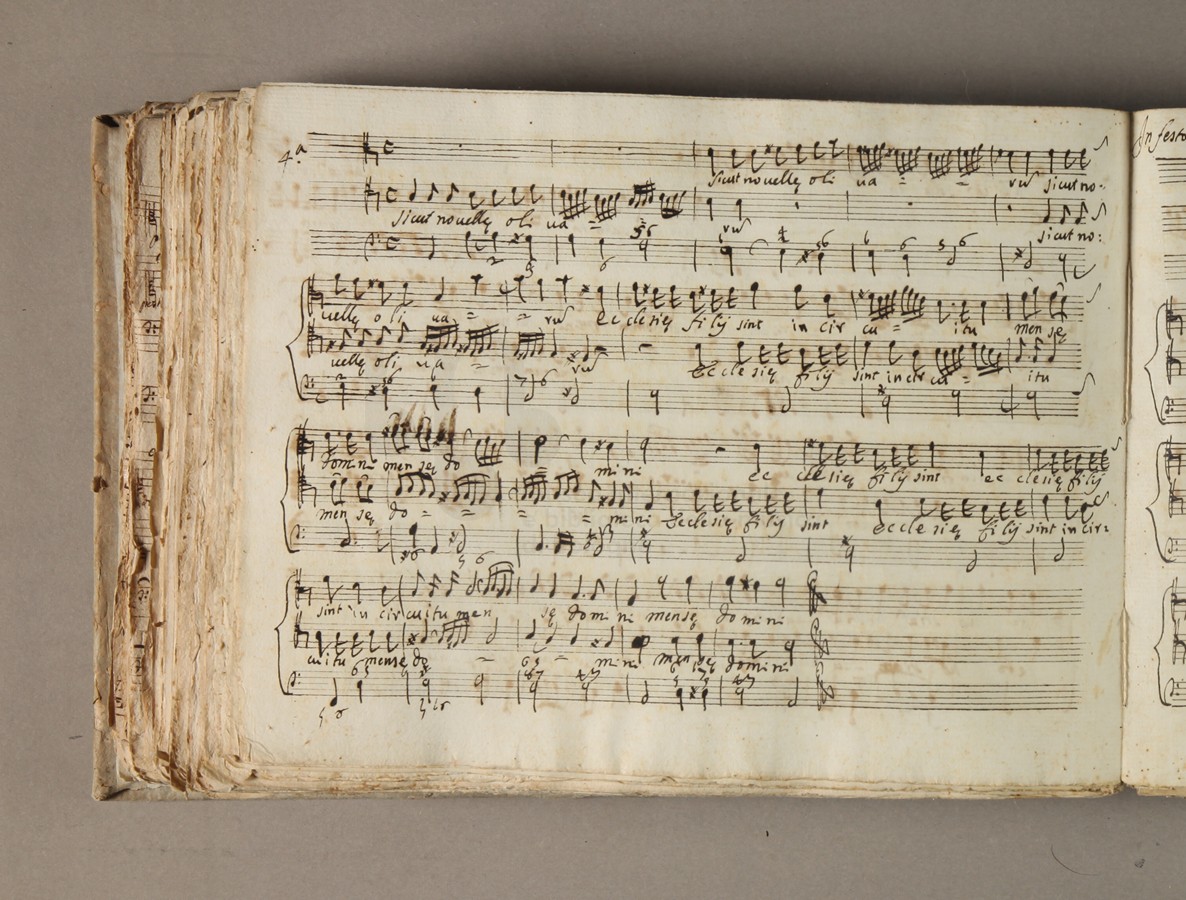 4.a
Sicut nouellę oli ua = = rū sicut no-
Sicut nouellę oli ua = rū sicut no:
uellę oli ua = = rū ecclesię filÿ sint in cir cu = itu mensę
uellę oli ua = rū Ecclesię filÿ sint in cir cu = itu
domini mensę do mini ec clesię filÿ sint ec clesię filÿ
mensę do = = = = mini Ecclesię filÿ sint Ecclesię filÿ sint in cir=
sint in circuitu men sę domini mensę domini
cuitu mensę do = = mini mensę domini
In festo